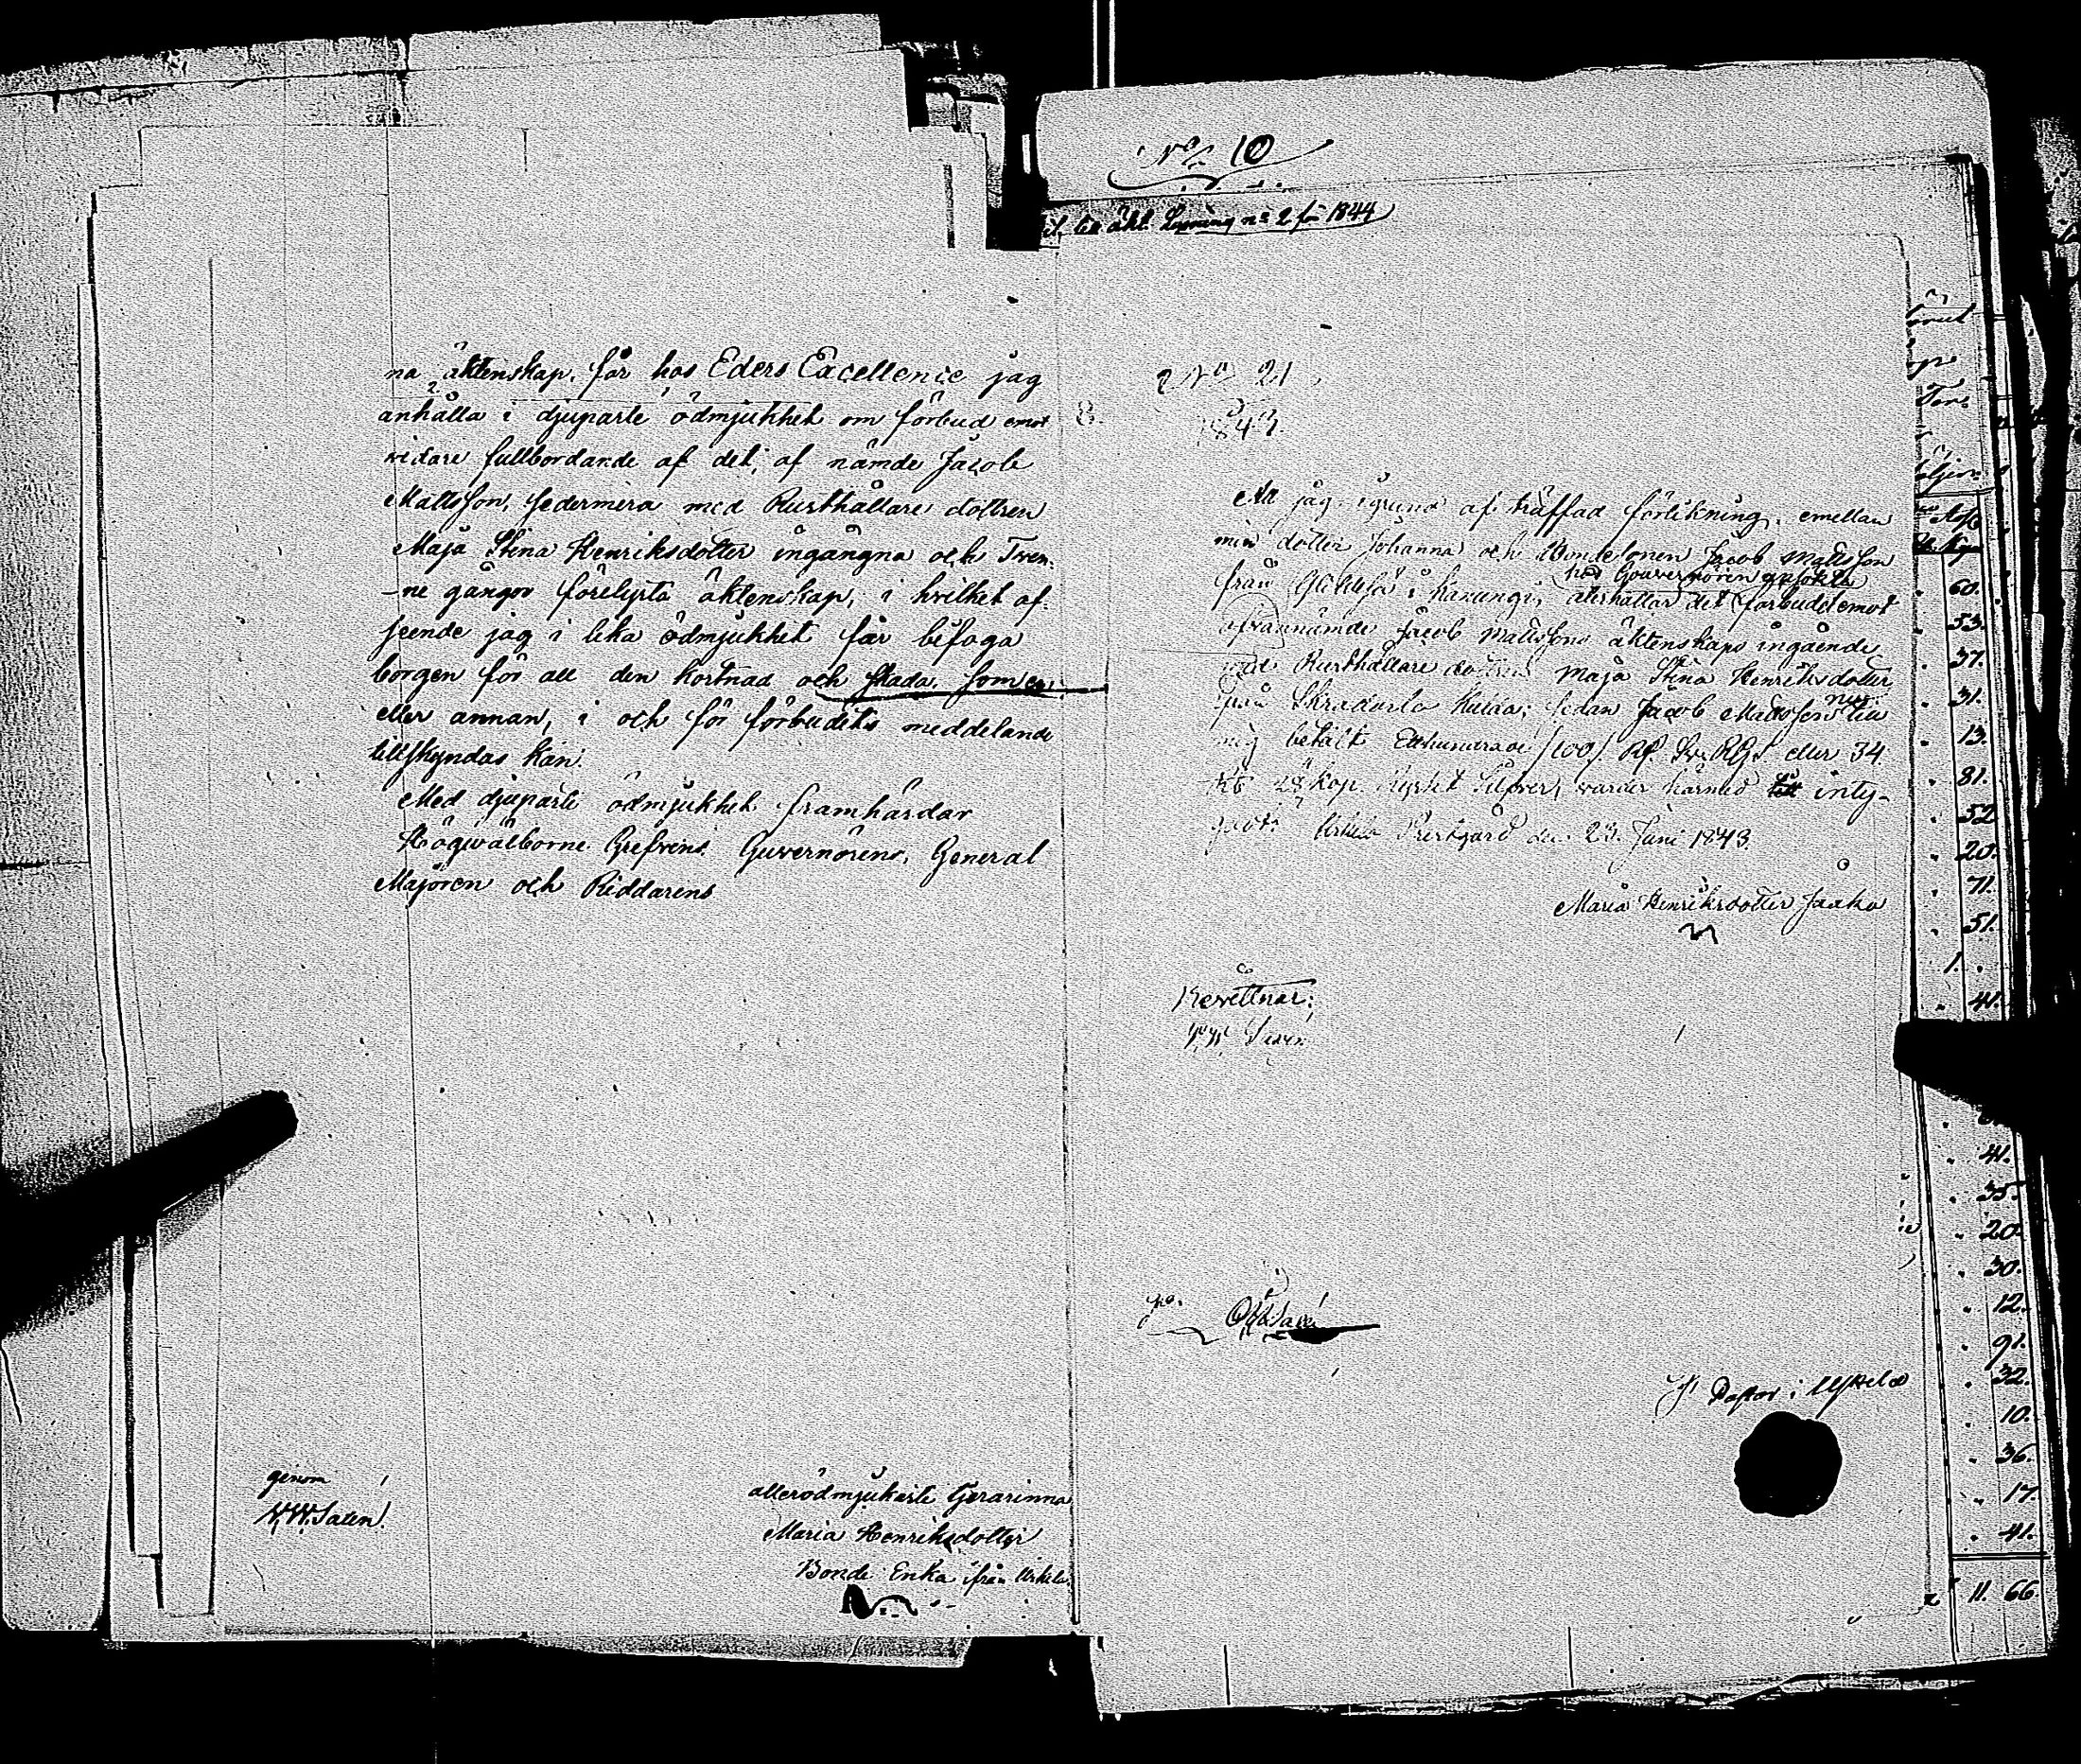 na äktenskap, får hos Eders Excellence jag
anhålla i djupaste ödmjukhet om förbud emot
vidare fullbordande af det, af nämde Jacob
Mattsson, sedermera med Rusthållare dottren
Maja Stina Henriksdotter ingångna och Tven-
-ne gångor förelysta äktenskap, i hvilket af-
seende jag i lika ödmjukhet får bifoga
borgen för all den kostnad och skada, som en
eller annan, i och för förbudets meddelande
tillskyndas kan.
Med djupaste ödmjukhet framhärdar
Högvälborne Grefvens, Guvernörens, General
Majoren och Riddarens
genom
allerödmjukaste tjenarinna
Maria Henriksdotter
Bonde Enka ifrån Urkela
No 10
till äkt. Lysning no 2 för 1844
No 21
1843.
Att jag, i grund af träffad förlikning, emellan
min dotter Johanna och Bondesonen Jacob Mattsson
från i Karungi, återkallar det hos Gouvernören ansökta förbudet emot
ofvannämde Jacob Mattssons äktenskaps ingående
med Rusthållare dottren Maja Stina Henriksdotter
från Skradarla Kulla; sedan Jacob Mattsson nu till
mig betalt Etthundrade /100/ Rd. Sv. RGs. eller 34
Rb 28 kop. Ryskt Silfver, varder härmed inty-
gadt. Urkela Prestgård den 23 Juni 1843.
Maria Henriksdotter Jaako
Bevittnar:
Pastor i
60.
53.
37.
31.
13.
81.
52
20.
71.
51.
1.
41.
41.
35.
20.
30.
12.
91.
32.
10.
36.
17.
41.
11. 66